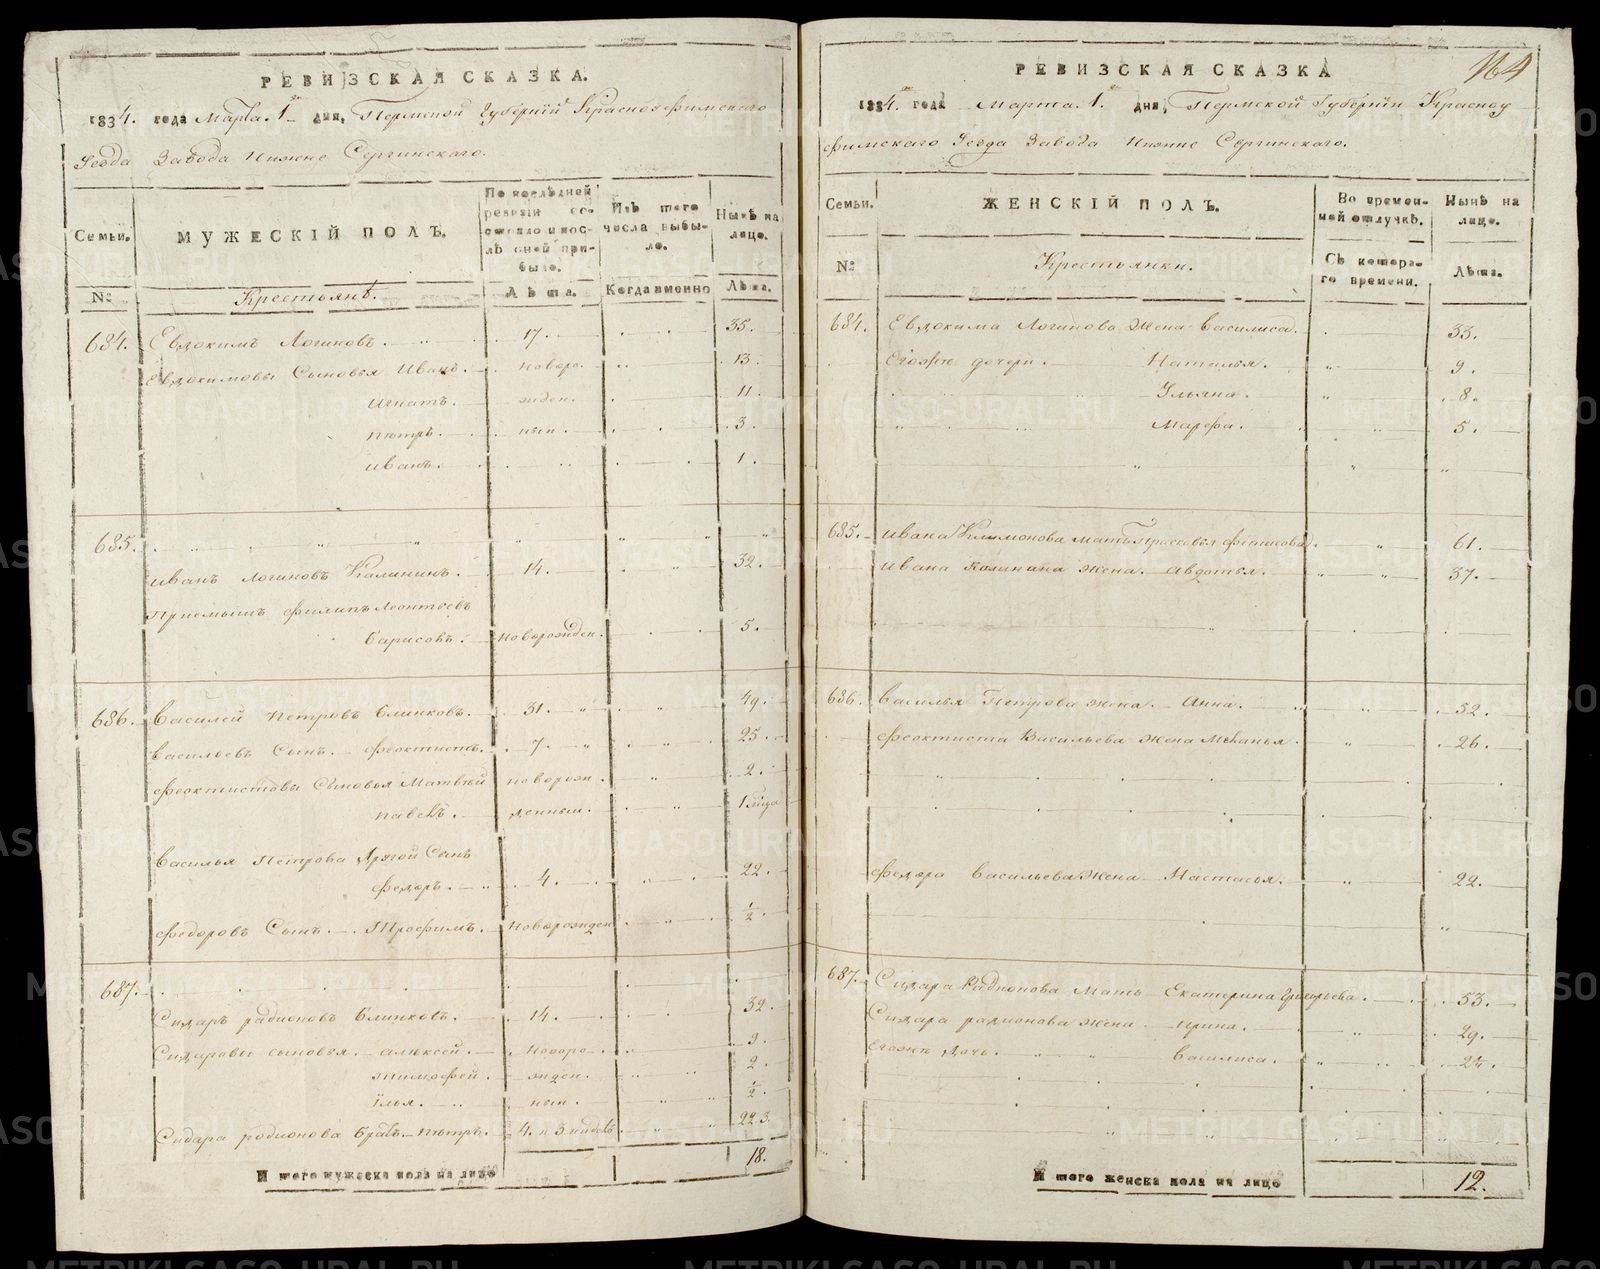 РЕВИЗСКАЯ СКАЗКА.
1834. года Марта. 1 дня, Пермской Губернiи Красноуфимскаго
Уезда Завода Нижне Сергинскаго.
Семьи. МУЖЕСКIЙ ПОЛЪ. По последней ревизiи состояло и после оной прибыло. Изъ того числа выбыло. Ныне на лицо.
№ Крестьянъ. Лета. Когда именно Лета.
684. Евдокимъ Логиновъ. 17. 35.
Евдокимовы Сыновья Иванъ. новоро- 13.
Игнатъ. жден. 11.
Петръ. ныи. 3.
Иванъ. 1.
685.
Иванъ Логиновъ Калининъ. 14. 32.
Прiемышъ Филипъ Леонтьевъ
Барисовъ. новорожден. 5.
686. Василей Петровъ Блинковъ. 31. 49.
Васильевъ Сынъ. Феоктистъ. 7. 25.
Феоктистовы Сыновья Матвей новорож. 2.
Павелъ. денныи. 1
Василья Петрова Другой Сынъ
Федоръ. 4. 22.
Федоровъ Сынъ. Трофимъ. Новорожден ½.
687.
Сидаръ радионовъ Блинковъ. 14. 32.
Сидаровы сыновья. алексей. новоро- 3.
тимофей. жден. 2.
Iлья. ныи. ½.
Сидара родионова Братъ. Петръ. 4. 22
И того мужеска пола на лицо 18.
РЕВИЗСКАЯ СКАЗКА
1834. года Марта. 1. дня, Пермской Губернiи Красноу
фимскаго Уезда Завода Нижне Сергинскаго.
Семьи. ЖЕНСКIЙ ПОЛЪ. Во временной отлучке. Ныне на лицо.
№ Крестьянки. Съ котораго времени. Лета.
684. Евдокима Логинова Жена Василиса. 33.
Егоже дочери. Наталья. 9.
Ульяна. 8.
Марфа. 5.
685. Ивана мать Прасковья 61.
Ивана Калинина жена. Авдотья. 37.
686. Василья Петрова жена. Анна. 52.
Феоктиста Васильева Жена Меланья. 26.
Федора Васильева Жена Настасья. 22.
687. Сидара Радионова Мать Екатерина Григорьева. 53.
Сидара радионова Жена Ирина. 29.
Егоже Дочь. Василиса.
И того женска пола на лицо 12.
METRIKI.GASO-URAL.RU